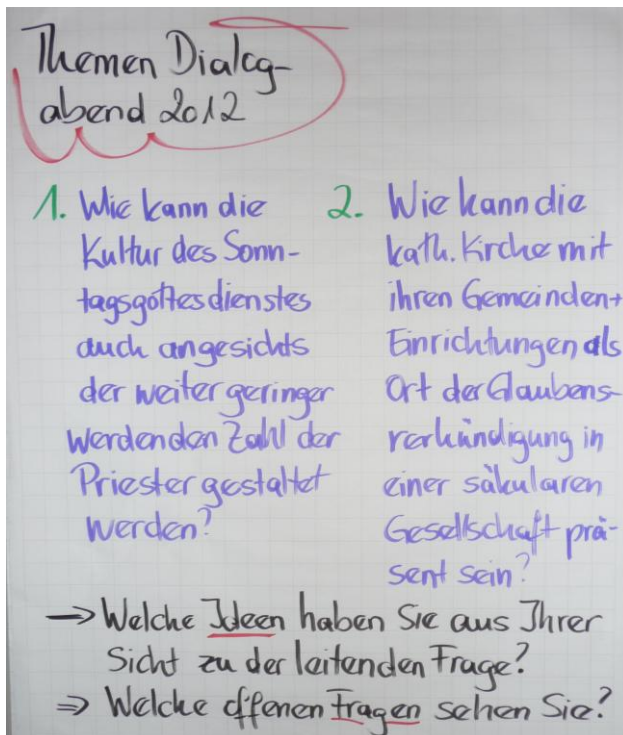 Themen Dialog-
abend 2012
1. Wie kann die
Kultur des Sonn-
tagsgottesdienstes
auch angesichts
der weiter geringer
werdenden Zahl der
Priester gestaltet
werden?
2. Wie kann die
kath. Kirche mit
ihren Gemeinden +
Einrichtungen als
Ort der Glaubens-
verkündigung in
einer säkularen
Gesellschaft prä-
sent sein?
→ Welche Ideen haben Sie aus Ihrer
Sicht zu der leitenden Frage?
⇒ Welche offenen Fragen sehen Sie?